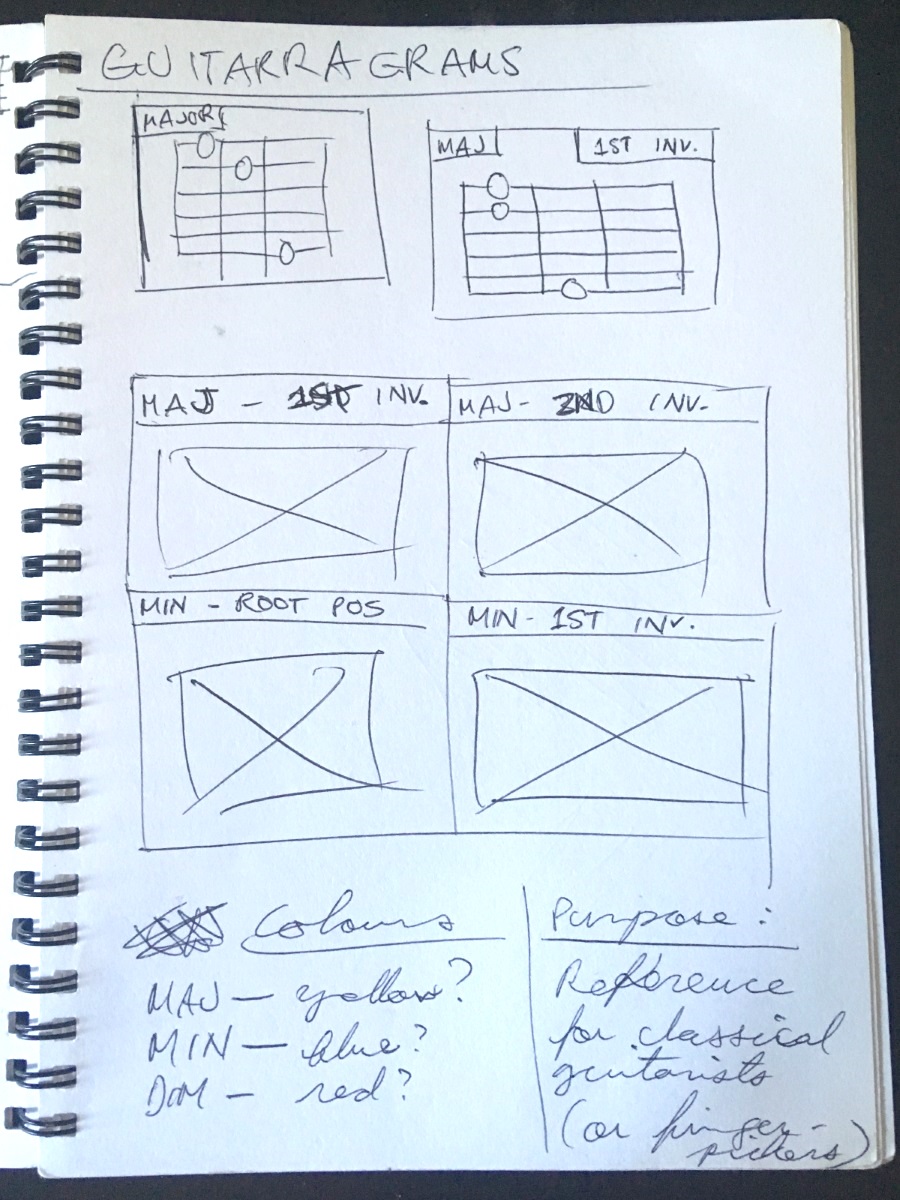 GUITARRAGRAMS
MAJOR
MAJ 1ST INV.
MAJ - 1ST INV.
MAJ- 2ND INV.
MIN - ROOT POS
MIN - 1ST INV.
Colours
MAJ — yellow?
MIN — blue?
DOM — red?
Purpose:
Reference
for classical
guitarists
(or finger-
pickers)